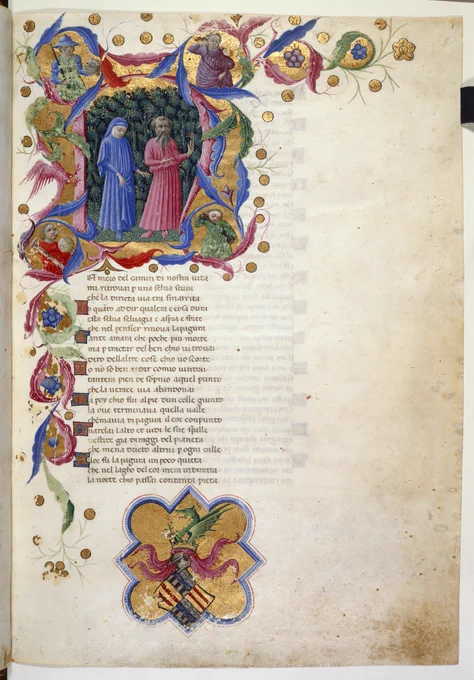 A mezo del camin di nostra vita
mi ritrovai p una selva scura
che la diricta via era smarita
quato a dir qual era e cosa dura
esta selva selvagia e aspra e forte
che nel pensier rinova la paura
tante amara che poche piu morte
ma p tractar del ben chio vi trovai
diro dellaltre cose chio vo scorte
o no so ben ridir comio vintrai
tantera pien de sopnio aquel punto
che la verace via abandonai
a poy chio fui al pe dun colle giunto
la ove terminava quella valle
che mavia di paura il cor conpunto
guardai lalto et vidi le sue spalle
vestite gia di raggi del pianeta
che mena dricto altrui p ogni calle
lor fu la paura un poco queta
che nel lagho del cor mera
la nocte chio passai contanta pieta